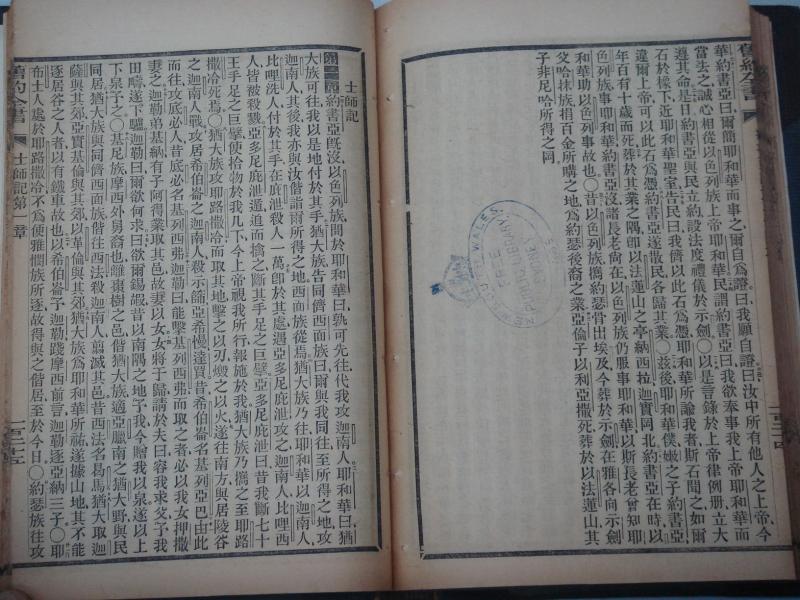 舊約全書
一百二十四
華約書亞曰爾簡耶和華而事之爾自爲證曰我願自證曰汝中所有他人之上帝今
當去之誠心相從以色列族上帝耶和華民謂約書亞曰我欲奉事我上帝耶和華而
遵其命是日約書亞與民立約設法度禮儀於示劍〇以是言錄於上帝律例册立大
石於橡下近耶和華聖室告民曰我儕以此石爲憑耶和華所諭我者斯石聞之如爾
違爾上帝可以此石爲憑約書亞遂散民各歸其業〇茲後耶和華僕嫩之子約書亞
年百有十歲而死葬於其業之隅卽以法蓮山之亭納西拉迦實岡北約書亞在時以
色列族事耶和華約書亞沒諸長老尙在以色列族仍服事耶和華以斯長老曾知耶
和華助以色列事故也〇昔以色列族攜約瑟骨出埃及今葬於示劍在雅各向示劍
父哈抹族捐百金所購之地爲約瑟後裔之業亞倫子以利亞撒死葬於以法蓮山其
子非尼哈所得之岡
WALES
FREE
PUBLIC LIBRARY
SYDNEY
士師記
約書亞旣沒以色列族問於耶和華曰孰可先往代我攻迦南人耶和華曰猶
大族可往我以是地付於其手猶大族告同儕西面族曰爾與我同往至所得之地攻
迦南人其後我亦與汝偕詣爾所得之地西面族從焉猶大族乃往耶和華以迦南人
比哩洗人付於其手在庇泄殺人一萬卽於其處遇亞多尼庇泄攻之迦南人比哩西
人皆被殺戮亞多尼庇泄遁追而擒之斷其手足之巨擘亞多尼庇泄曰昔我斷七十
王手足之巨擘使拾物於我几下今上帝視我所行報施於我猶大族乃攜之至耶路
撒冷死焉〇猶大族攻耶路撒冷而取其地擊之以刃燬之以火遂往南方與居陵谷
之迦南人戰攻居希伯崙之迦南人殺示篩亞希幔達買昔希伯崙名基列亞巴由此
而往攻底必人昔底必名基列西弗迦勒曰能擊基列西弗而取之者必以我女押撒
妻之迦勒弟基納有子阿得業取其邑故妻以女女將于歸請於夫曰容我求父予我
田疇遂下驢迦勒曰爾欲何求曰欲爾錫嘏昔以南隅之地予我今贈我以泉遂以上
下泉予之〇基尼族摩西外舅裔也離棗樹之邑偕猶大族適亞臘南之猶大野與民
同居猶大族與同儕西面族偕往西法殺迦南人翦滅其邑昔西法名曷馬猶大取迦
薩與其郊亞實基倫與其郊以革倫與其郊猶大族爲耶和華所祐遂據山地其不能
逐居谷之人者以有鐵車故也以希伯崙予迦勒踐摩西前言迦勒逐亞納三子〇耶
布士人處於耶路撒冷不爲便雅憫族所逐故得與之偕居至於今日〇約瑟族往攻
舊約全書
士師記第一章
一百二十五